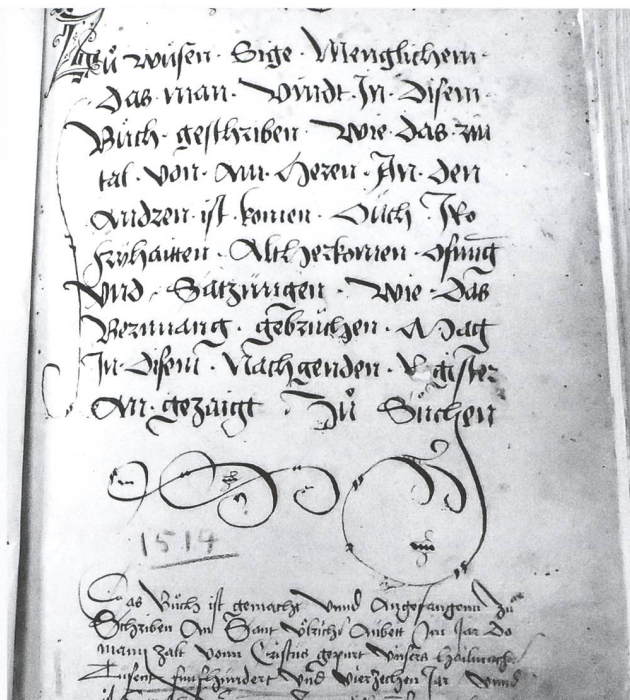 Zu wüsen · Sige · Menglichem ·
Das man · vindt · In · Disem ·
Buch · geschriben · wie · das · 
tal · von · ain · Heren · An · den
Andren · ist · komen · Ouch · 
fryhaiten · Altherkomen · ofnung
vnd · Satzungen · wie · das
 · gebruchen · Mag
In · disem · Nachgenden · Register
An · gezaigt · Zu Suchen
1514
Das Buch ist gemacht vnnd Angefangenn zu
Schriben An Sant Vlrichs Aubett Im Jar Do
mann zalt vonn Cristus gepurt vnsers hailmach
Tusent funfhundert vnd vierzechen Jar vnnd